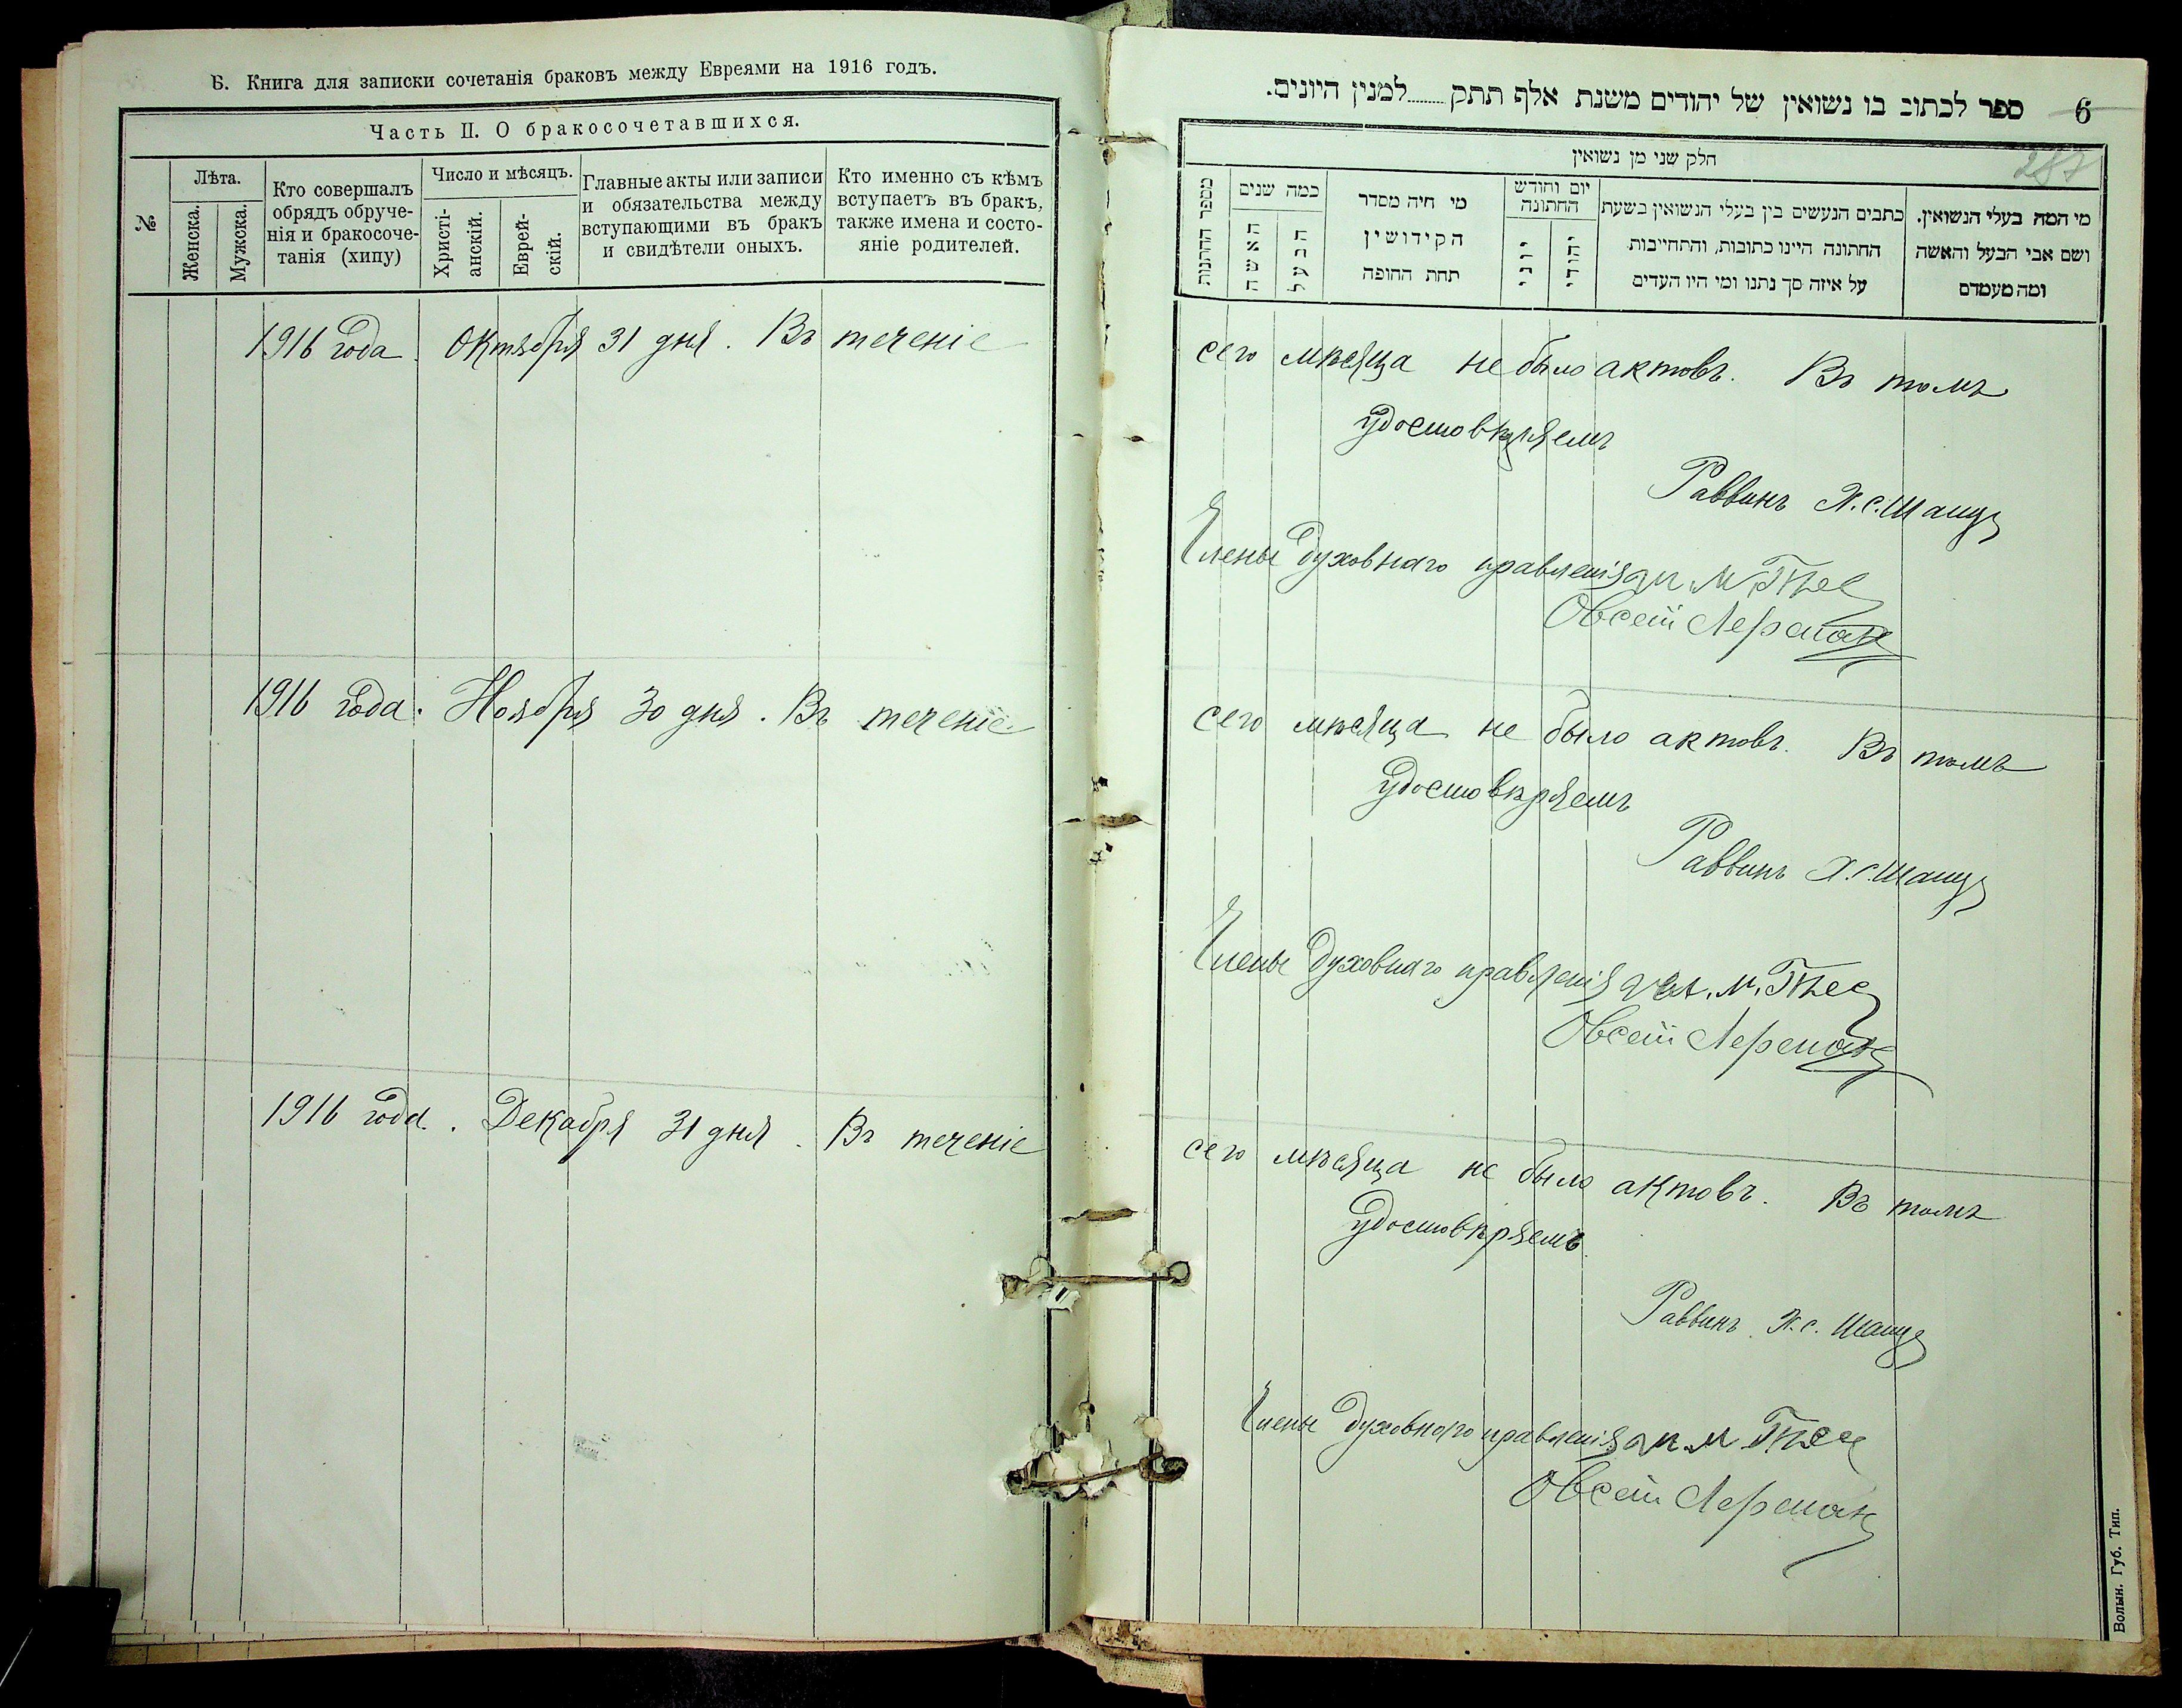 Б. Книга для записки сочетанія браковъ между Евреями на 1916 годъ.
Часть II. О бракосочетавшихся.
№
Лѣта.
Женска.
Мужска.
Кто совершалъ
обрядъ обруче-
нія и бракосоче-
танія (хипу)
Число и мѣсяцъ.
Христі-
анскій.
Еврей-
скій.
Главные акты или записи
и обязательства между
вступающими въ бракъ
и свидѣтели оныхъ.
Кто именно съ кѣмъ
вступаетъ въ бракъ,
также имена и состо-
яніе родителей.
1916 года. Октября 31 дня. Въ теченіе
1916 года. Ноября 30 дня. Въ теченіе
1916 года. Декабря 31 дня. Въ теченіе
ספר לכתוב בו נשואין של יהודים משנת אלף תתק........למנין היונים.
6
287
חלק שני מן נשואין
מי המה בעלי הנשואין.
ושם אבי הבעל והאשה
ומה מעמדם
כתבים הנעשים בין בעלי הנשואין בשעת
החתונה היינו כתובות, והתחייבות
על איזה סך נתנו ומי היו העדים
יום וחודש
החתונה
יהודי
יוני
מי היה מסדר
הקידושין
תחת החופה
כמה שנים
הבעל
האשה
מספר החתונות
сего мѣсяца не было актовъ. Въ томъ
удостовѣряемъ
Раввинъ
Члены духовнаго правленія
Овсей Лерман
сего мѣсяца не было актовъ. Въ томъ
удостовѣряемъ
Раввинъ
Члены духовнаго правленія
Овсей Лерман
сего мѣсяца не было актовъ. Въ томъ
удостовѣряемъ.
Раввинъ
Члены духовнаго правленія
Овсей Лерман
Волын. Губ. Тип.